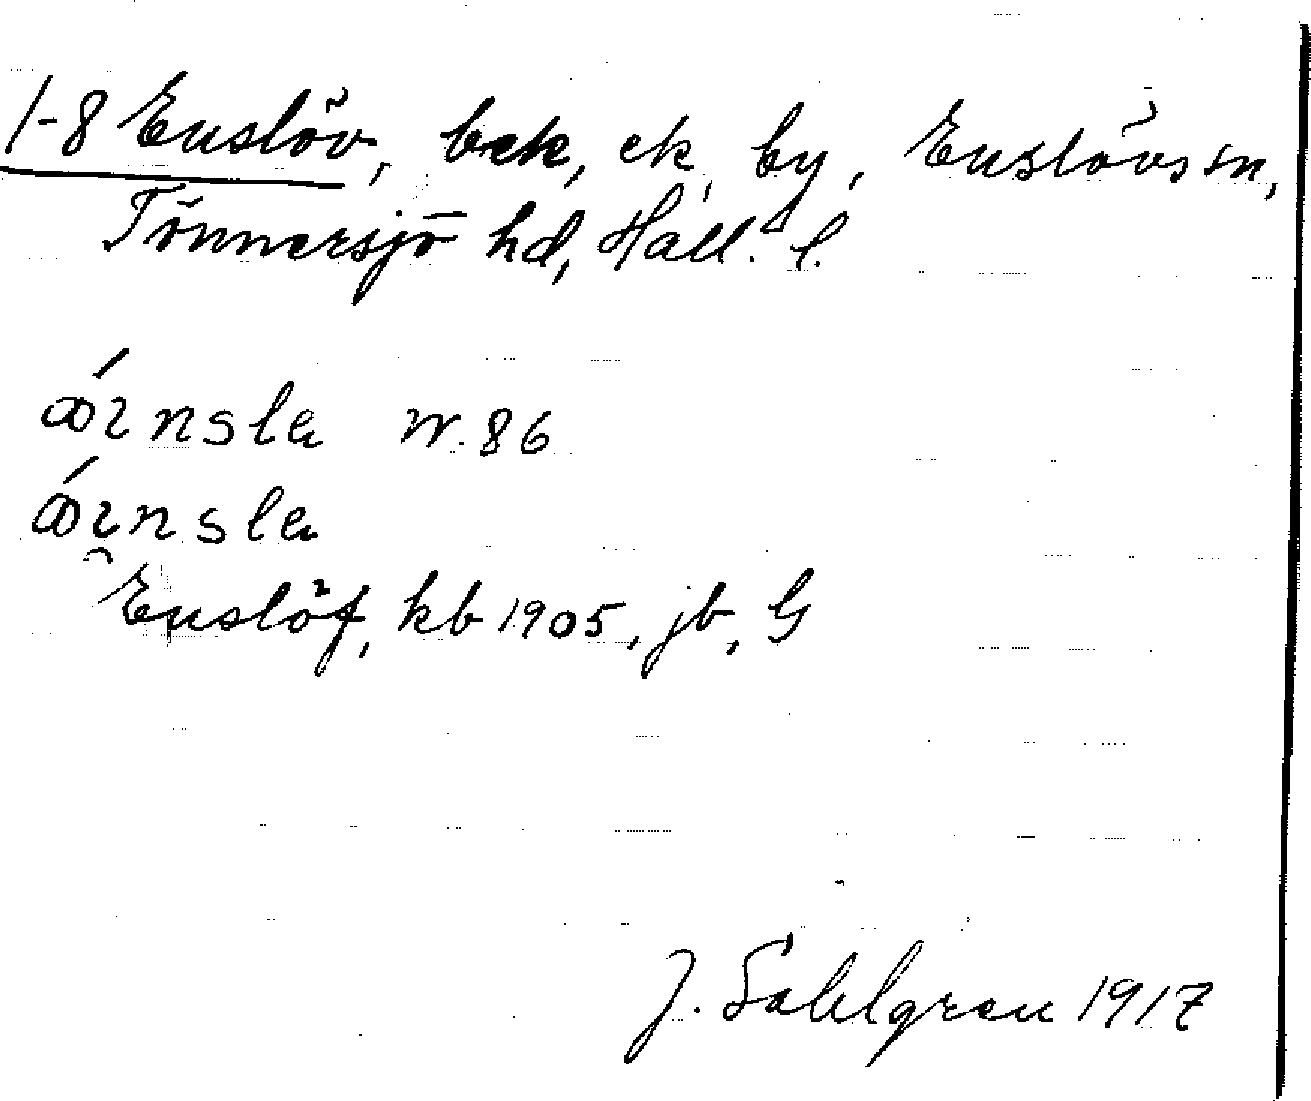 1-8 Enslöv, bck, ck, by, Enslövs sn,
Tönnersjö hd, Hall. l.
nr. 86
Enslöf, kb 1905, jb, G
J. Sahlgren 1917